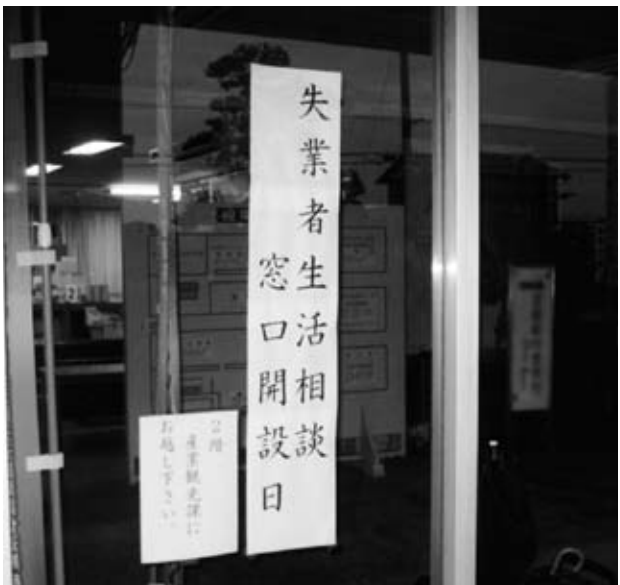 失業者生活相談
窓口開設日
2階
「産業観光課」に
お越し下さい。